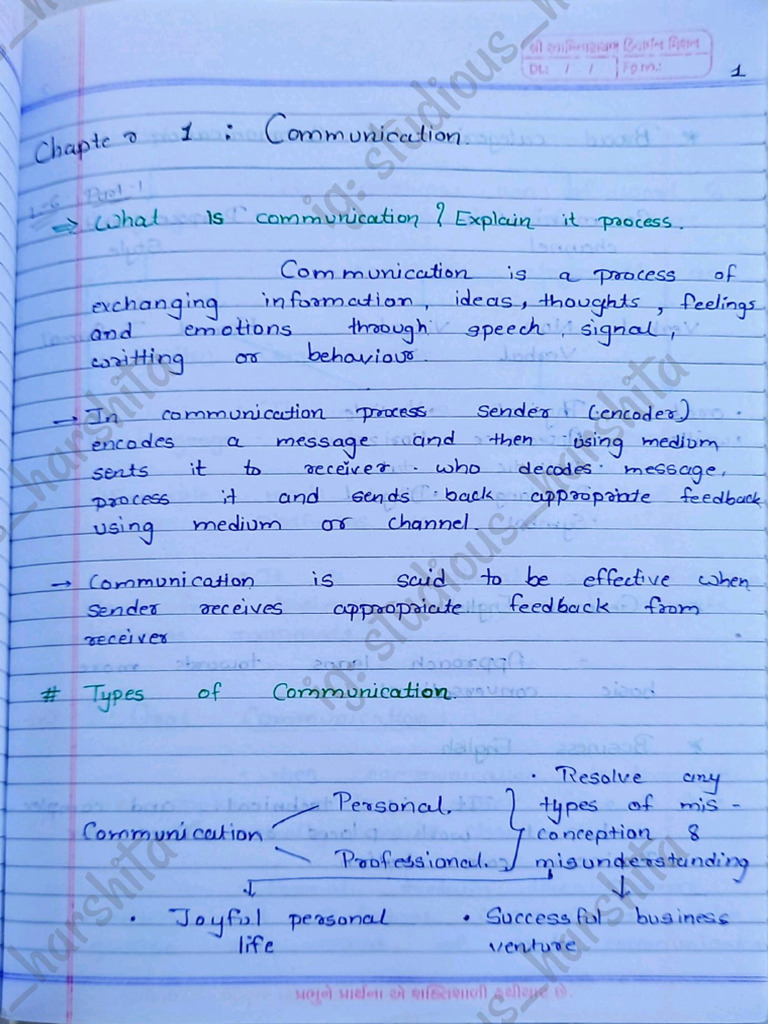 શ્રી સ્વામિનારાયણ ડિવાઈન મિશન
Dt.: / /
1
Chapter 1 : Communication.
Part-1
⇒ What Is communication? Explain it process.
Communication is a process of
exchanging information, ideas, thoughts, feelings
and emotions through speech, signal,
writting or behaviour.
→ In communication process sender (encoder)
encodes a message and then using medium
sents it to receiver. who decodes message,
process it and sends back appropriate feedback
using medium or channel.
→ Communication is said to be effective when
sender receives appropriate feedback from
receiver
# Types of Communication.
• Resolve any
Personal. types of mis-
Communication conception &
Professional. misunderstanding
• Joyful personal • Successful business
life venture
પ્રભુને પ્રાર્થના એ શક્તિશાળી હથીયાર છે.
ig: studious_harshita
ig: studious_harshita